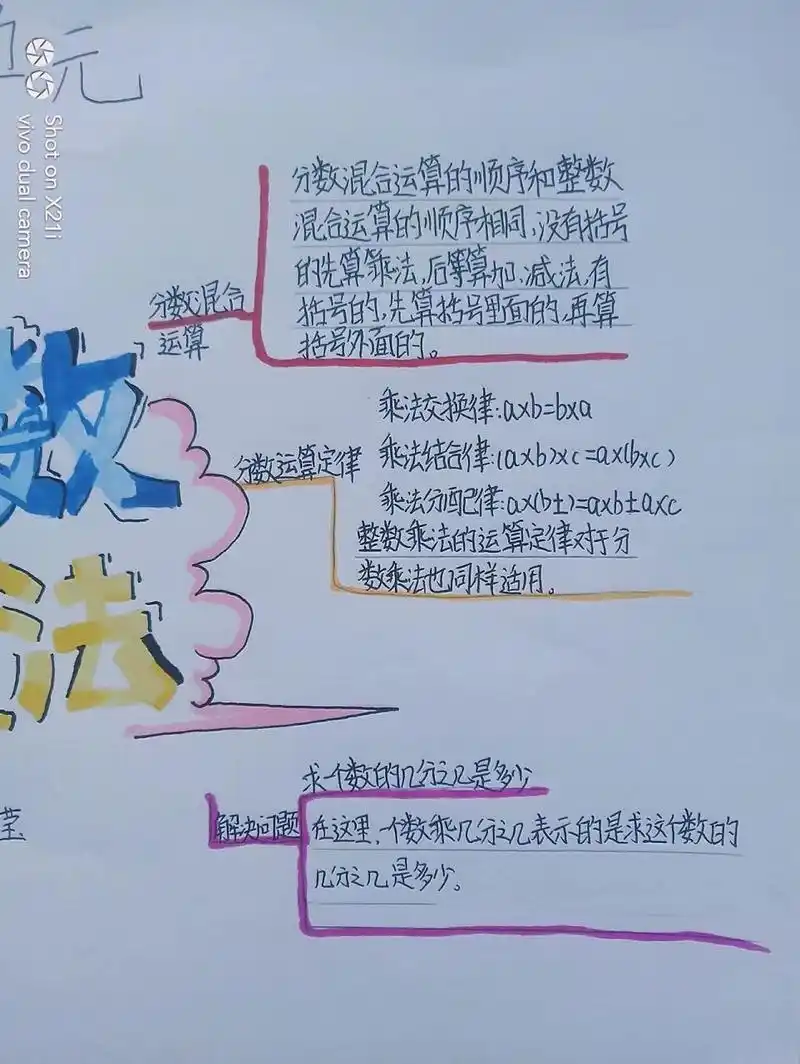 元
Shot on X21i
vivo dual camera
分数混合运算的顺序和整数
混合运算的顺序相同,没有括号
的先算乘法,后算加、减法,有
括号的,先算括号里面的,再算
括号外面的。
分数混合
运算
数
法
乘法交换律:a×b=b×a
乘法结合律:(a×b)×c=a×(b×c)
乘法分配律:a×(b±)=a×b±a×c
整数乘法的运算定律对于分
数乘法也同样适用。
分数运算定律
求一个数的几分之几是多少
解决问题
在这里,一个数乘几分之几表示的是求这个数的
几分之几是多少。
莹